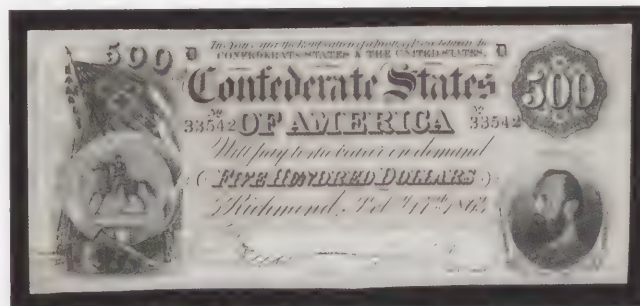 500 D
CONFEDERATE STATES & THE UNITED STATES. D
Confederate States
500
No 33542 OF AMERICA No 33542
Will pay to the bearer on demand
FIVE HUNDRED DOLLARS
Richmond, Feb 17th